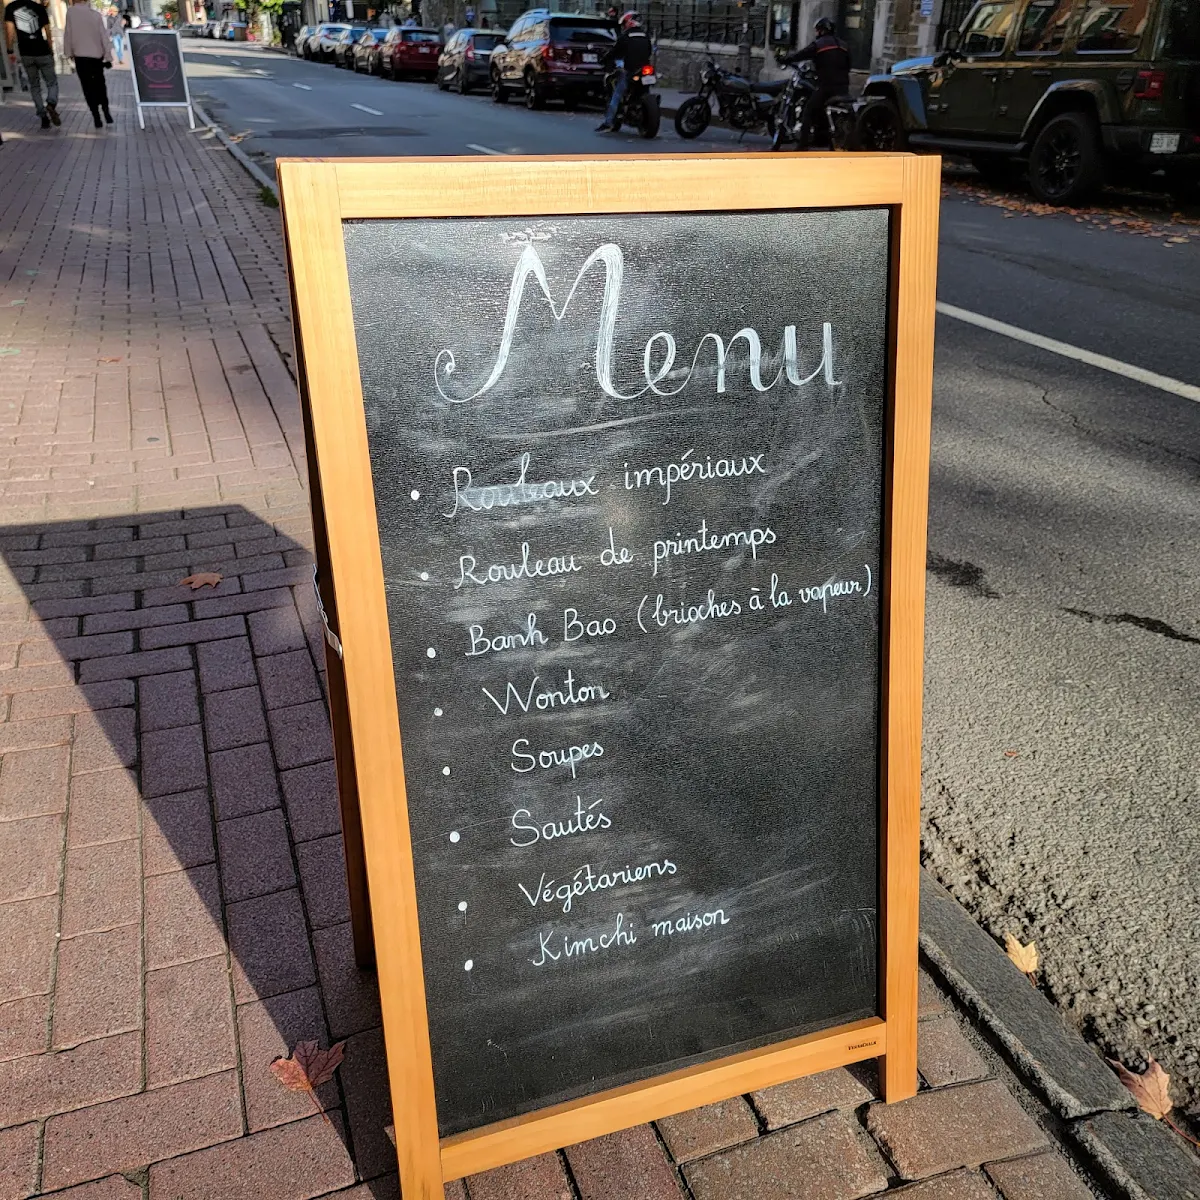 Menu
• Rouleaux impériaux
• Rouleau de printemps
• Banh Bao (brioches à la vapeur)
• Wonton
• Soupes
• Sautés
• Végétariens
• Kimchi maison